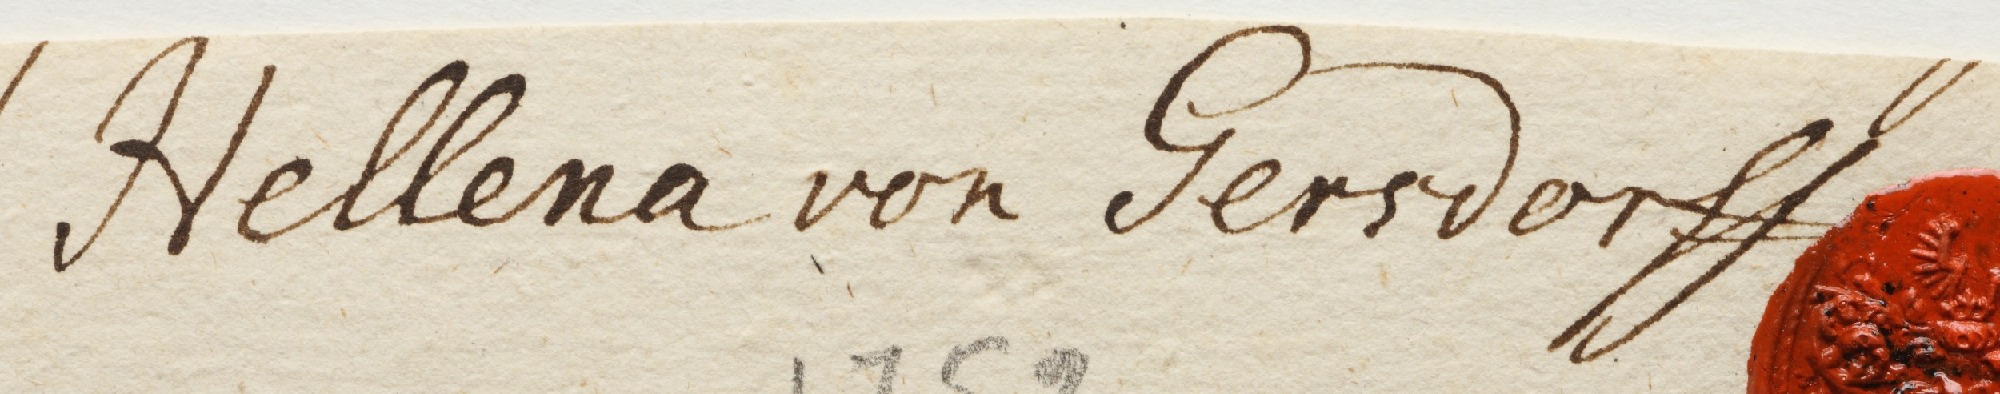 Hellena von Gersdorff